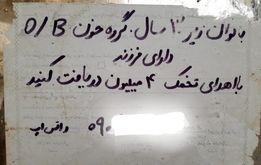 بانوان زیر ۳۰ سال. گروه خون O/B
دارای فرزند
با اهدای تخمک ۴ میلیون دریافت کنید
۰۹۰ واتس اپ